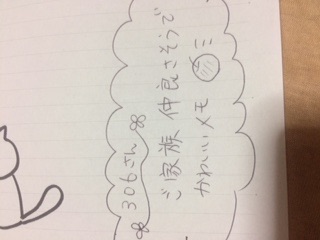 306さん
ご家族 仲良さそうで
かわいいメモ